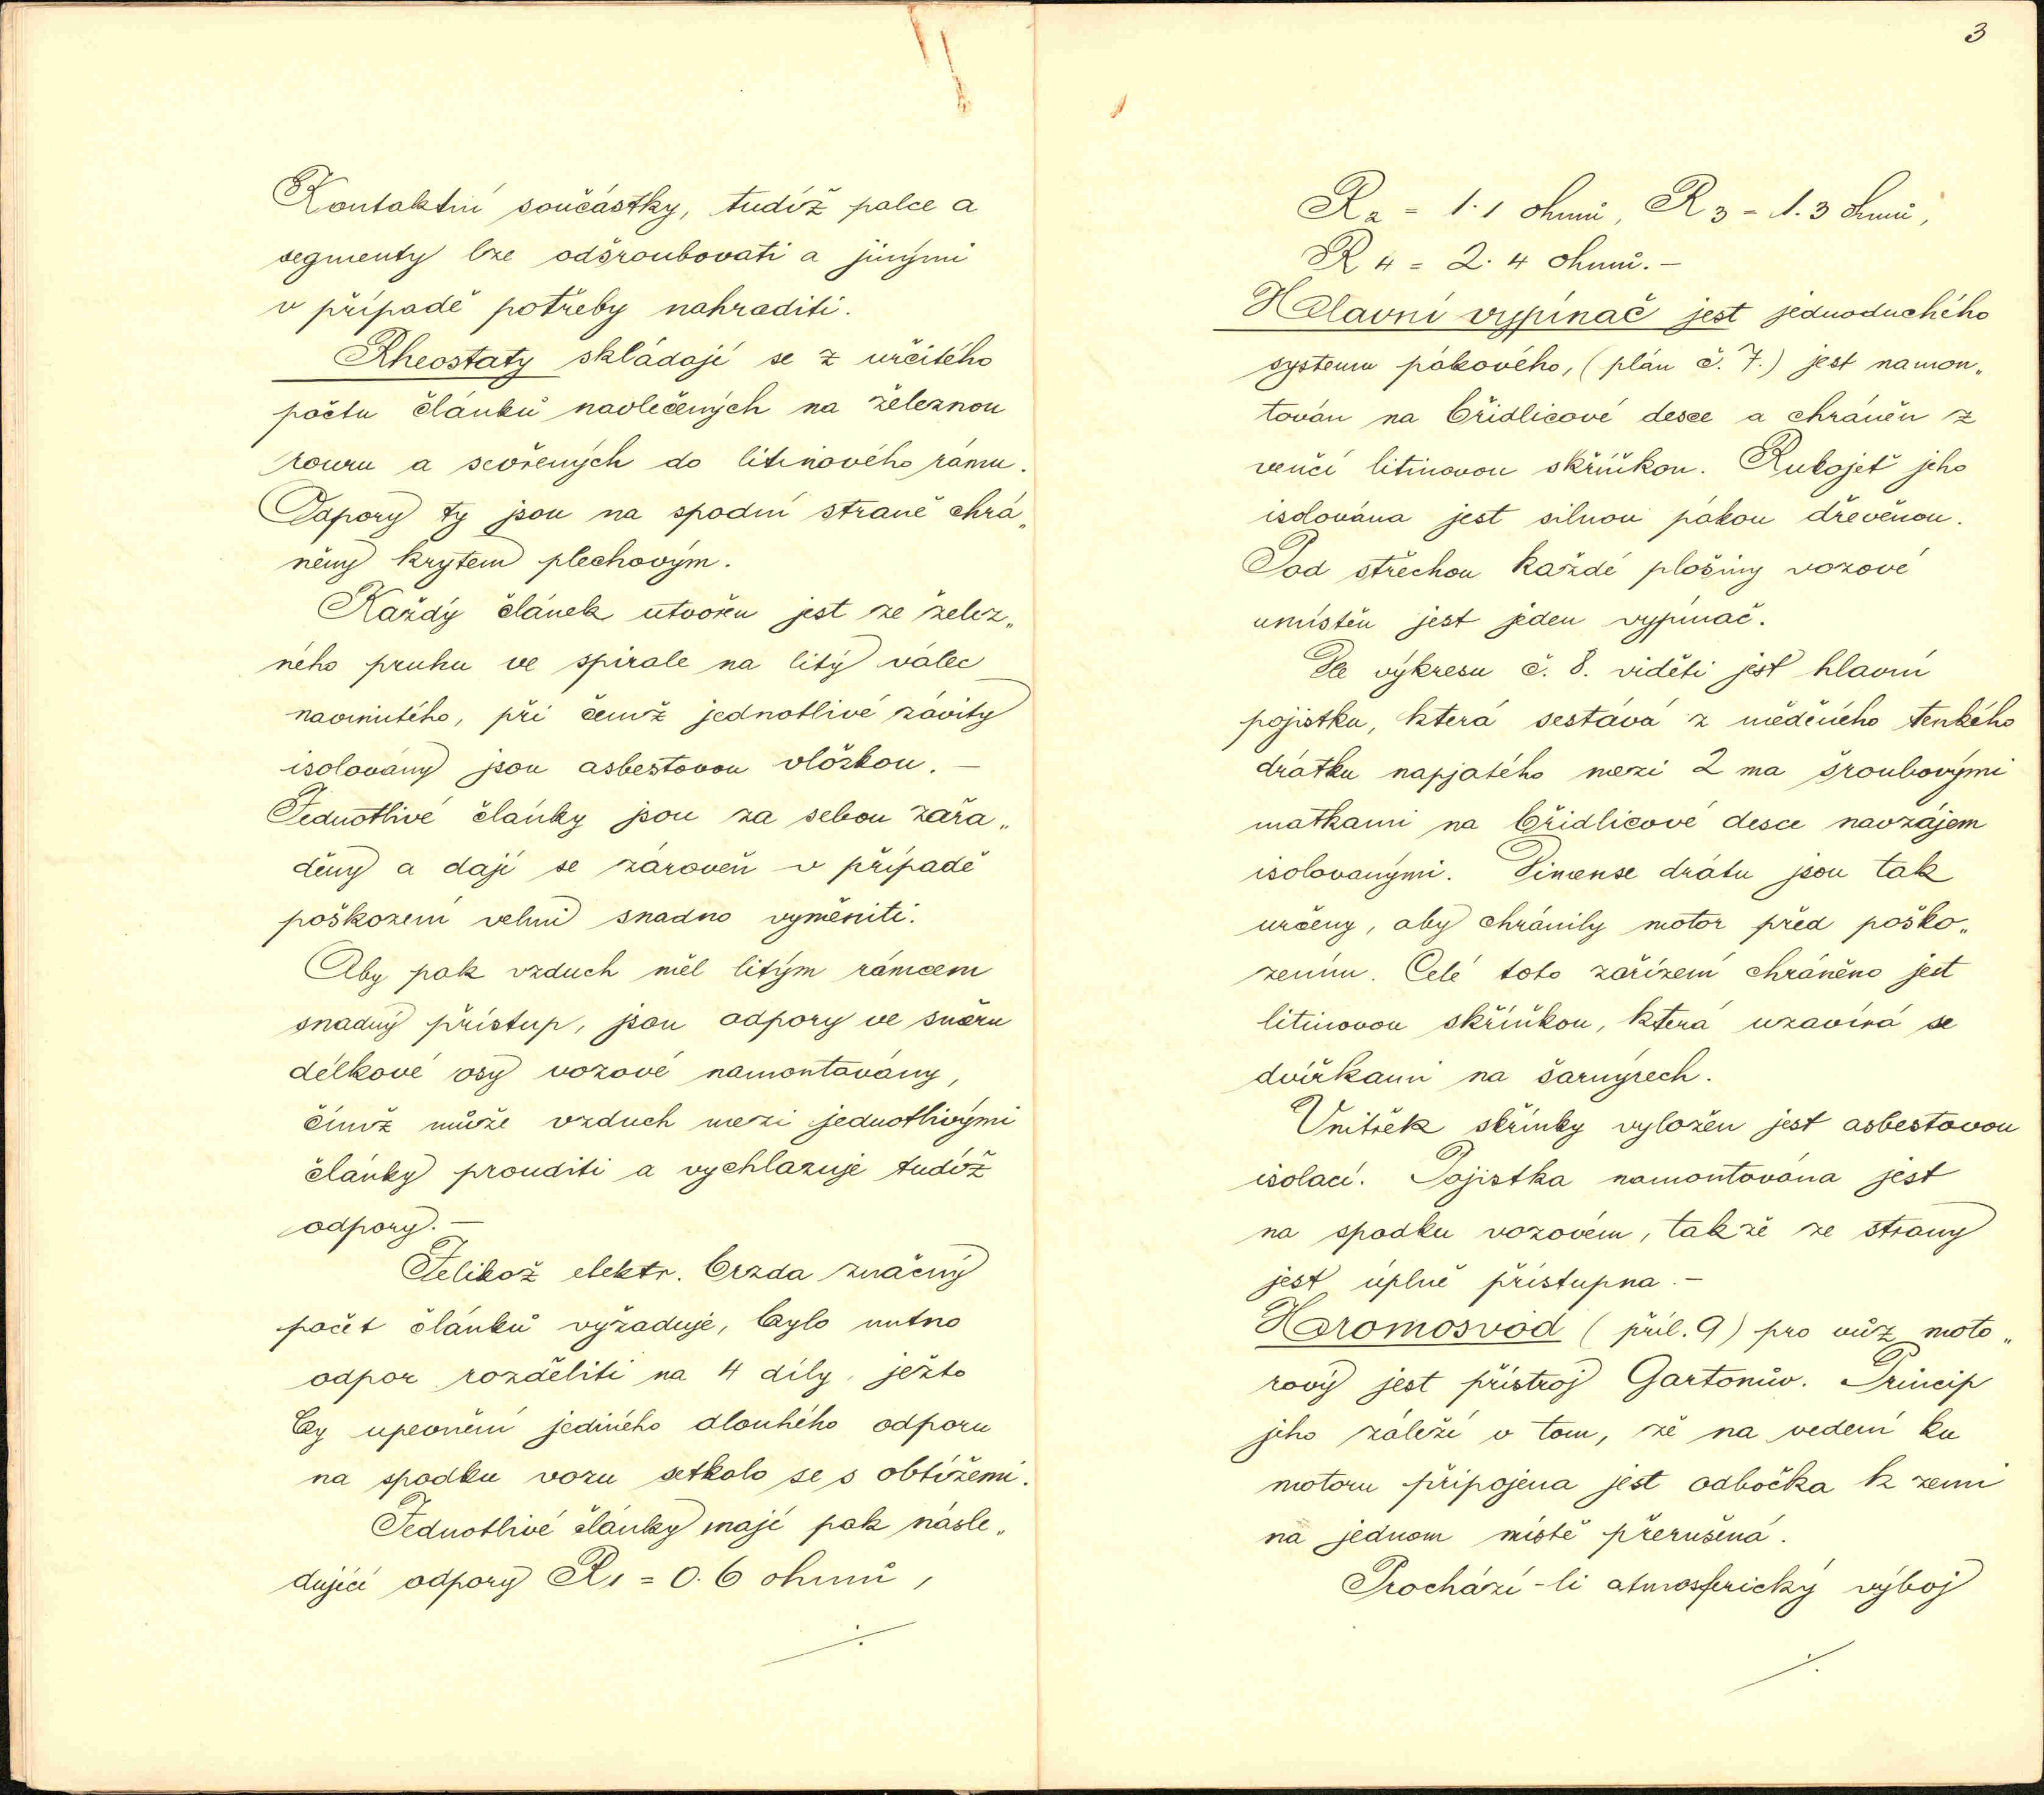 Kontaktní součástky, tudíž palce a
segmenty lze odšroubovati a jinými
v případě potřeby nahraditi.
Rheostaty skládají se z určitého
počtu článků navlečených na železnou
rouru a sevřených do litinového rámu.
Odpory ty jsou na spodní straně chrá„
něny krytem plechovým.
Každý článek utvořen jest ze želez„
ného pruhu ve spirale na litý válec
navinutého, při čemž jednotlivé závity
isolovány jsou asbestovou vložkou. —
Jednotlivé články jsou za sebou zařa„
děny a dají se zároveň v případě
poškození velmi snadno vyměniti.
Aby pak vzduch měl litým rámcem
snadný přístup, jsou odpory ve směru
délkové osy vozové namontovány,
čímž může vzduch mezi jednotlivými
články prouditi a vychlazuje tudíž
odpory. —
Jelikož elektr. brzda značný
počet článků vyžaduje, bylo nutno
odpor rozděliti na 4 díly, ježto
by upevnění jediného dlouhého odporu
na spodku vozu setkalo se s obtížemi.
Jednotlivé články mají pak násle„
dující odpory R1 = 0.6 ohmů,
./.
3
R2 = 1.1 ohmů, R3 = 1.3 ohmů,
R4 = 2.4 ohmů. —
Hlavní vypínač jest jednoduchého
systemu pákového, (plán č. 7.) jest namon„
tován na břidlicové desce a chráněn z
venčí litinovou skříňkou. Rukojeť jeho
isolována jest silnou pákou dřevěnou.
Pod střechou každé plošiny vozové
umístěn jest jeden vypínač.
Dle výkresu č. 8. viděti jest hlavní
pojistku, která sestává z měděného tenkého
drátku napjatého mezi 2 ma šroubovými
matkami na břidlicové desce navzájem
isolovanými. Dimense drátu jsou tak
určeny, aby chránily motor před poško„
zením. Celé toto zařízení chráněno jest
litinovou skříňkou, která uzavírá se
dvířkami na šarnýrech.
Vnitřek skřínky vyložen jest asbestovou
isolací. Pojistka namontována jest
na spodku vozovém, takže ze strany
jest úplně přístupna. —
Hromosvod (příl. 9) pro vůz moto„
rový jest přístroj Gartonův. Princip
jeho záleží v tom, že na vedení ku
motoru připojena jest odbočka k zemi
na jednom místě přerušená.
Prochází-li atmosferický výboj
./.